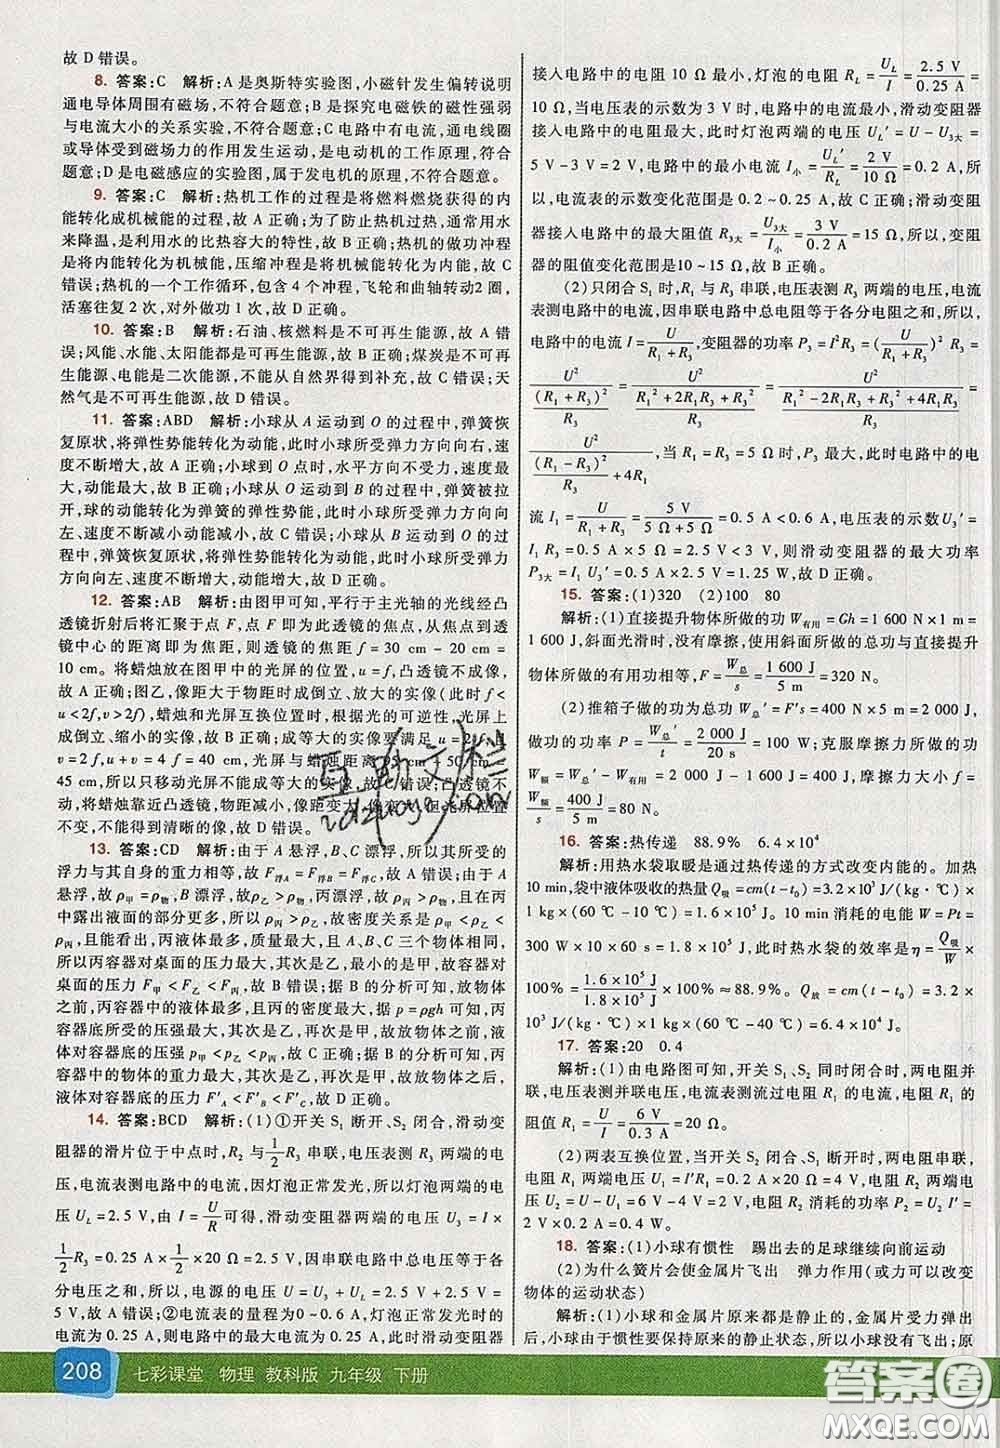 故 D 错误。
8. 答案:C 解析:A 是奥斯特实验图,小磁针发生偏转说明
通电导体周围有磁场,不符合题意;B 是探究电磁铁的磁性强弱
与电流大小的关系实验,不符合题意;C 电路中有电流,通电线圈
或导体受到磁场力的作用发生运动,是电动机的工作原理,符合
题意;D 是电磁感应的实验图,属于发电机的原理,不符合题意。
9. 答案:C 解析:热机工作的过程是将燃料燃烧获得的内
能转化成机械能的过程,故 A 正确;为了防止热机过热,通常用水
来降温,是利用水的比热容大的特性,故 B 正确;热机的做功冲程
是将内能转化为机械能,压缩冲程是将机械能转化为内能,故 C
错误;热机的一个工作循环,包含 4 个冲程,飞轮和曲轴转动2 圈,
活塞往复 2 次,对外做功 1 次,故 D 正确。
10. 答案:B 解析:石油、核燃料是不可再生能源,故 A 错
误;风能、水能、太阳能都是可再生能源,故 B 正确;煤炭是不可再
生能源、电能是二次能源,不能从自然界得到补充,故 C 错误;天
然气是不可再生能源,故 D 错误。
11. 答案:ABD 解析:小球从 A 运动到 O 的过程中,弹簧
恢复原状,将弹性势能转化为动能,此时小球所受弹力方向向右,速
度不断增大,故 A 正确;小球到 O 点时,水平方向不受力,速度最
大,动能最大,故 B 正确;小球从 O 运动到 B 的过程中,弹簧被拉
开,球的动能转化为弹簧的弹性势能,此时小球所受弹力方向向
左、速度不断减小动能减小,故 C 错误;小球从 B 运动到 O 的过
程中,弹簧恢复原状,将弹性势能转化为动能,此时小球所受弹力
方向向左、速度不断增大,动能增大,故 D 正确。
12. 答案:AB 解析:由图甲可知,平行于主光轴的光线经凸
透镜折射后将汇聚于点 F,点 F 即为此透镜的焦点,点 F 与凸透
镜中心的距离即为焦距,则透镜的焦距 f = 30 cm - 20 cm =
10 cm。将蜡烛放在图甲中的光屏的位置,凸透镜不成像,
故 A 正确;图乙,像距大于物距时成倒立、放大的实像(此时 f<
u<2f,v>2f),蜡烛和光屏互换位置时,根据光的可逆性,光屏上
成倒立、缩小的实像,故 B 正确;成等大的实像要满足 u = 2f 且
v = 2f,u+v = 4f = 40 cm,光屏与蜡烛之间的距离为 95 cm - 50 cm =
45 cm,所以只移动光屏不能成等大的实像,故 C 错误;凸透镜不动,
将蜡烛靠近凸透镜,物距减小,像距变大,像变大,但光屏位置
不变,不能得到清晰的像,故 D 错误。
13. 答案:CD 解析:由于 A 悬浮,B、C 漂浮,所以其所受的
浮力与其自身的重力相等,故 F浮A = F浮B = F浮C,故 A 错误;因甲
悬浮,故 ρ甲 = ρ物,乙漂浮,故 ρ乙 > ρ物,丙漂浮,故 ρ丙 > ρ物,因丙
中露出液面的部分更多,所以 ρ丙 > ρ乙,故液体的密度是 ρ甲 < ρ乙 <
ρ丙,且后来液面相平,丙液体最多,质量最大,甲、乙、丙三个物体相同,
所以丙容器总质量最大,其次是乙,最小的是甲,故容器对
容器对桌面的压力 F甲 < F乙 < F丙,故 B 错误;据 B 的分析可知,放物体
之前丙容器中的液体最多,质量最大,其次是乙,故据 p = ρgh 可知,丙
容器底所受的压强最大,其次是乙,最小的是甲,故放物体之前,液
体对容器底的压强 p甲 < p乙 < p丙,故 C 正确;据 B 的分析可知,放物体
之前丙容器中的液体最多,质量最大,其次是乙,最小的是甲,故放物体之前,
液体对容器底的压力 F′A < F′B < F′C,故 D 正确。
14. 答案:BCD 解析:(1)①开关 S1 断开、S2 闭合,滑动变
阻器的滑片位于中点时,R2 与 1/2 R3 串联,电压表测 R3 两端的电
压,电流表测电路中的电流,因灯泡正常发光,所以,灯泡两端的电
压 UL = 2.5 V,由 I = U/R 可得,滑动变阻器两端的电压 U3 = I ×
1/2 R3 = 0.25 A × 1/2 × 20 Ω = 2.5 V,因串联电路中总电压等于各
分电压之和,所以,电源的电压 U = U3 + UL = 2.5 V + 2.5 V =
5 V,故 A 错误;②电流表的量程为0~0.6 A,灯泡正常发光时的
电流为 0.25 A,则电路中的最大电流为 0.25 A,滑动变阻器
接入电路中的电阻 10 Ω 最小,灯泡的电阻 RL = UL/I = 2.5 V/0.25 A =
10 Ω,当电压表的示数为 3 V 时,电路中的电流最小,滑动变阻器
接入电路中的电阻最大,此时灯泡两端的电压 UL′ = U - U3大 =
5 V - 3 V = 2 V,电路中的最小电流 I小 = UL′/RL = 2 V/10 Ω = 0.2 A,
所以,电流表的示数变化范围是 0.2~0.25 A,故 C 正确;滑动变
阻器接入电路中的最大阻值 R3大 = U3大/I小 = 3 V/0.2 A = 15 Ω,所以,变阻
器的阻值变化范围是10~15 Ω,故 B 正确。
(2)只闭合 S1 时,R1 与 R3 串联,电压表测 R3 两端的电压,电流
表测电路中的电流,因串联电路中总电阻等于各分电阻之和,所以,
电路中的电流 I = U/(R1 + R3),变阻器的功率 P3 = I²R3 = (U/(R1 + R3))² R3 =
U²/((R1 + R3)²/R3) = U²/((R1² + 2R1R3 + R3²)/R3) = U²/((R1² - 2R1R3 + R3² + 4R1R3)/R3) =
U²/((R1 - R3)²/R3 + 4R1),当 R1 = R3 = 5 Ω时,P3 最大,此时电路中的电
流 I1 = U/(R1 + R3) = 5 V/(5 Ω + 5 Ω) = 0.5 A < 0.6 A,电压表的示数U3′ =
I1 R3 = 0.5 A × 5 Ω = 2.5 V < 3 V,则滑动变阻器的最大功率
P3大 = I1 U3′ = 0.5 A × 2.5 V = 1.25 W,故 D 正确。
15. 答案:(1)320 (2)100 80
解析:(1)直接提升物体所做的功 W有用 = Gh = 1 600 N × 1 m =
1 600 J,斜面光滑时,没有摩擦,使用斜面所做的总功与直接提升
物体所做的有用功相等,F = W总/s = 1 600 J/5 m = 320 N。
(2)推箱子做的功为总功 W总′ = F′s = 400 N × 5 m = 2 000 J,
做功的功率 P = W总′/t = 2 000 J/20 s = 100 W;克服摩擦力所做的功
W额 = W总′ - W有用 = 2 000 J - 1 600 J = 400 J,摩擦力大小 f =
W额/s = 400 J/5 m = 80 N。
16. 答案:热传递 88.9% 6.4×10⁴
解析:用热水袋取暖是通过热传递的方式改变内能的。加热
10 min,袋中液体吸收的热量 Q吸 = cm(t - t0) = 3.2×10³ J/(kg·℃) ×
1 kg×(70 ℃ - 20 ℃) = 1.6×10⁵ J。10 min 消耗的电能 W = Pt =
300 W × 10 × 60 s = 1.8 × 10⁵ J,此时热水袋的效率是 η = Q吸/W ×
100% = 1.6×10⁵ J/1.8×10⁵ J × 100% ≈ 88.9%。Q放 = cm(t - t0) = 3.2 ×
10³ J/(kg·℃) × 1 kg × (60 ℃ - 40 ℃) = 6.4×10⁴ J。
17. 答案:20 0.4
解析:(1)由电路图可知,开关 S1、S2 同时闭合时,两电阻并
联,电压表测并联电压,电流表测流过电阻 R1 的电流,电阻 R1 的
阻值 R1 = U/I = 6 V/0.3 A = 20 Ω。
(2)两表互换位置,当开关 S2 闭合、S1 断开时,两电阻串联,
电阻 R1 两端电压 U1 = I′R1 = 0.2 A×20 Ω = 4 V,电阻 R2 两端电压
U2 = U - U1 = 6 V - 4 V = 2 V,电阻 R2 消耗的功率 P2 = U2 I′ =
2 V×0.2 A = 0.4 W。
18. 答案:(1)小球有惯性 踢出去的足球继续向前运动
(2)为什么簧片会使金属片飞出 弹力作用(或力可以改变
物体的运动状态)
解析:(1)小球和金属片原来都是静止的,金属片受力弹出
后,小球由于惯性要保持原来的静止状态,所以小球没有飞出;原
208 七彩课堂 物理 教科版 九年级 下册
答案圈
MXQE.COM